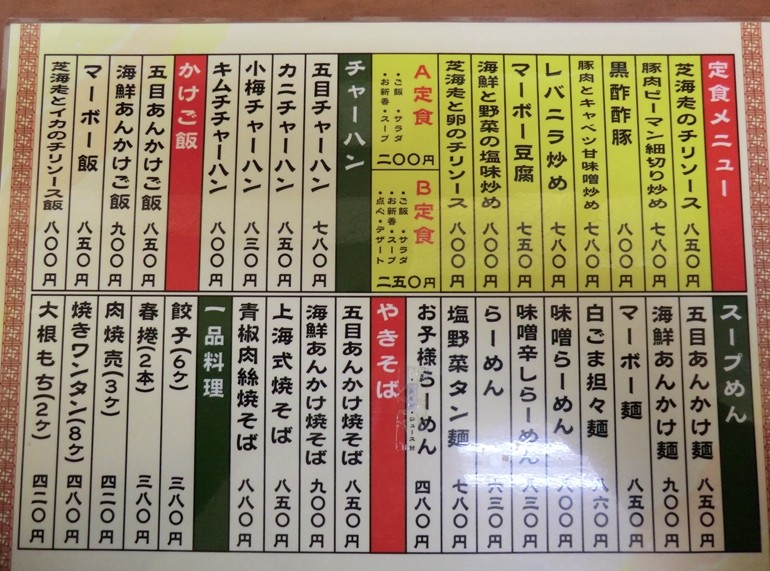 定食メニュー
芝海老のチリソース 八五〇円
豚肉ピーマン細切り炒め 七八〇円
黒酢酢豚 八〇〇円
豚肉とキャベツ甘味噌炒め 七八〇円
レバニラ炒め 七八〇円
マーボー豆腐 七五〇円
海鮮と野菜の塩味炒め 八〇〇円
芝海老と卵のチリソース 八〇〇円
A定食
・ご飯 ・サラダ
・お新香・スープ
二〇〇円
B定食
・ご飯 ・サラダ
・お新香・スープ
・点心・デザート
二五〇円
チャーハン
五目チャーハン 七八〇円
カニチャーハン 八五〇円
小梅チャーハン 八三〇円
キムチチャーハン 八〇〇円
かけご飯
五目あんかけご飯 八五〇円
海鮮あんかけご飯 九〇〇円
マーボー飯 八五〇円
芝海老とイカのチリソース飯 八〇〇円
スープめん
五目あんかけ麺 八五〇円
海鮮あんかけ麺 九〇〇円
マーボー麺 八五〇円
白ごま担々麺 八六〇円
味噌らーめん 八〇〇円
味噌辛しらーめん 八三〇円
らーめん 六三〇円
塩野菜タン麺 七八〇円
お子様らーめん 四八〇円
やきそば
五目あんかけ焼そば 八五〇円
海鮮あんかけ焼そば 九〇〇円
上海式焼そば 八五〇円
青椒肉絲焼そば 八八〇円
一品料理
餃子(6ヶ) 三八〇円
春捲(2本) 三八〇円
肉焼売(3ヶ) 四二〇円
焼きワンタン(8ヶ) 四八〇円
大根もち(2ヶ) 四二〇円